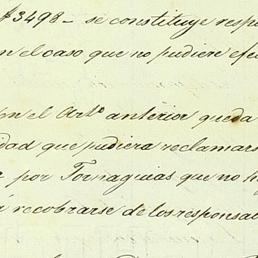 $3498 - se constituye resp
n el caso que no pudiere efe
on el Arto. anterior queda
idad que pudiera reclamars
r por Tornaguias que no h
a recobrarse de los responsa